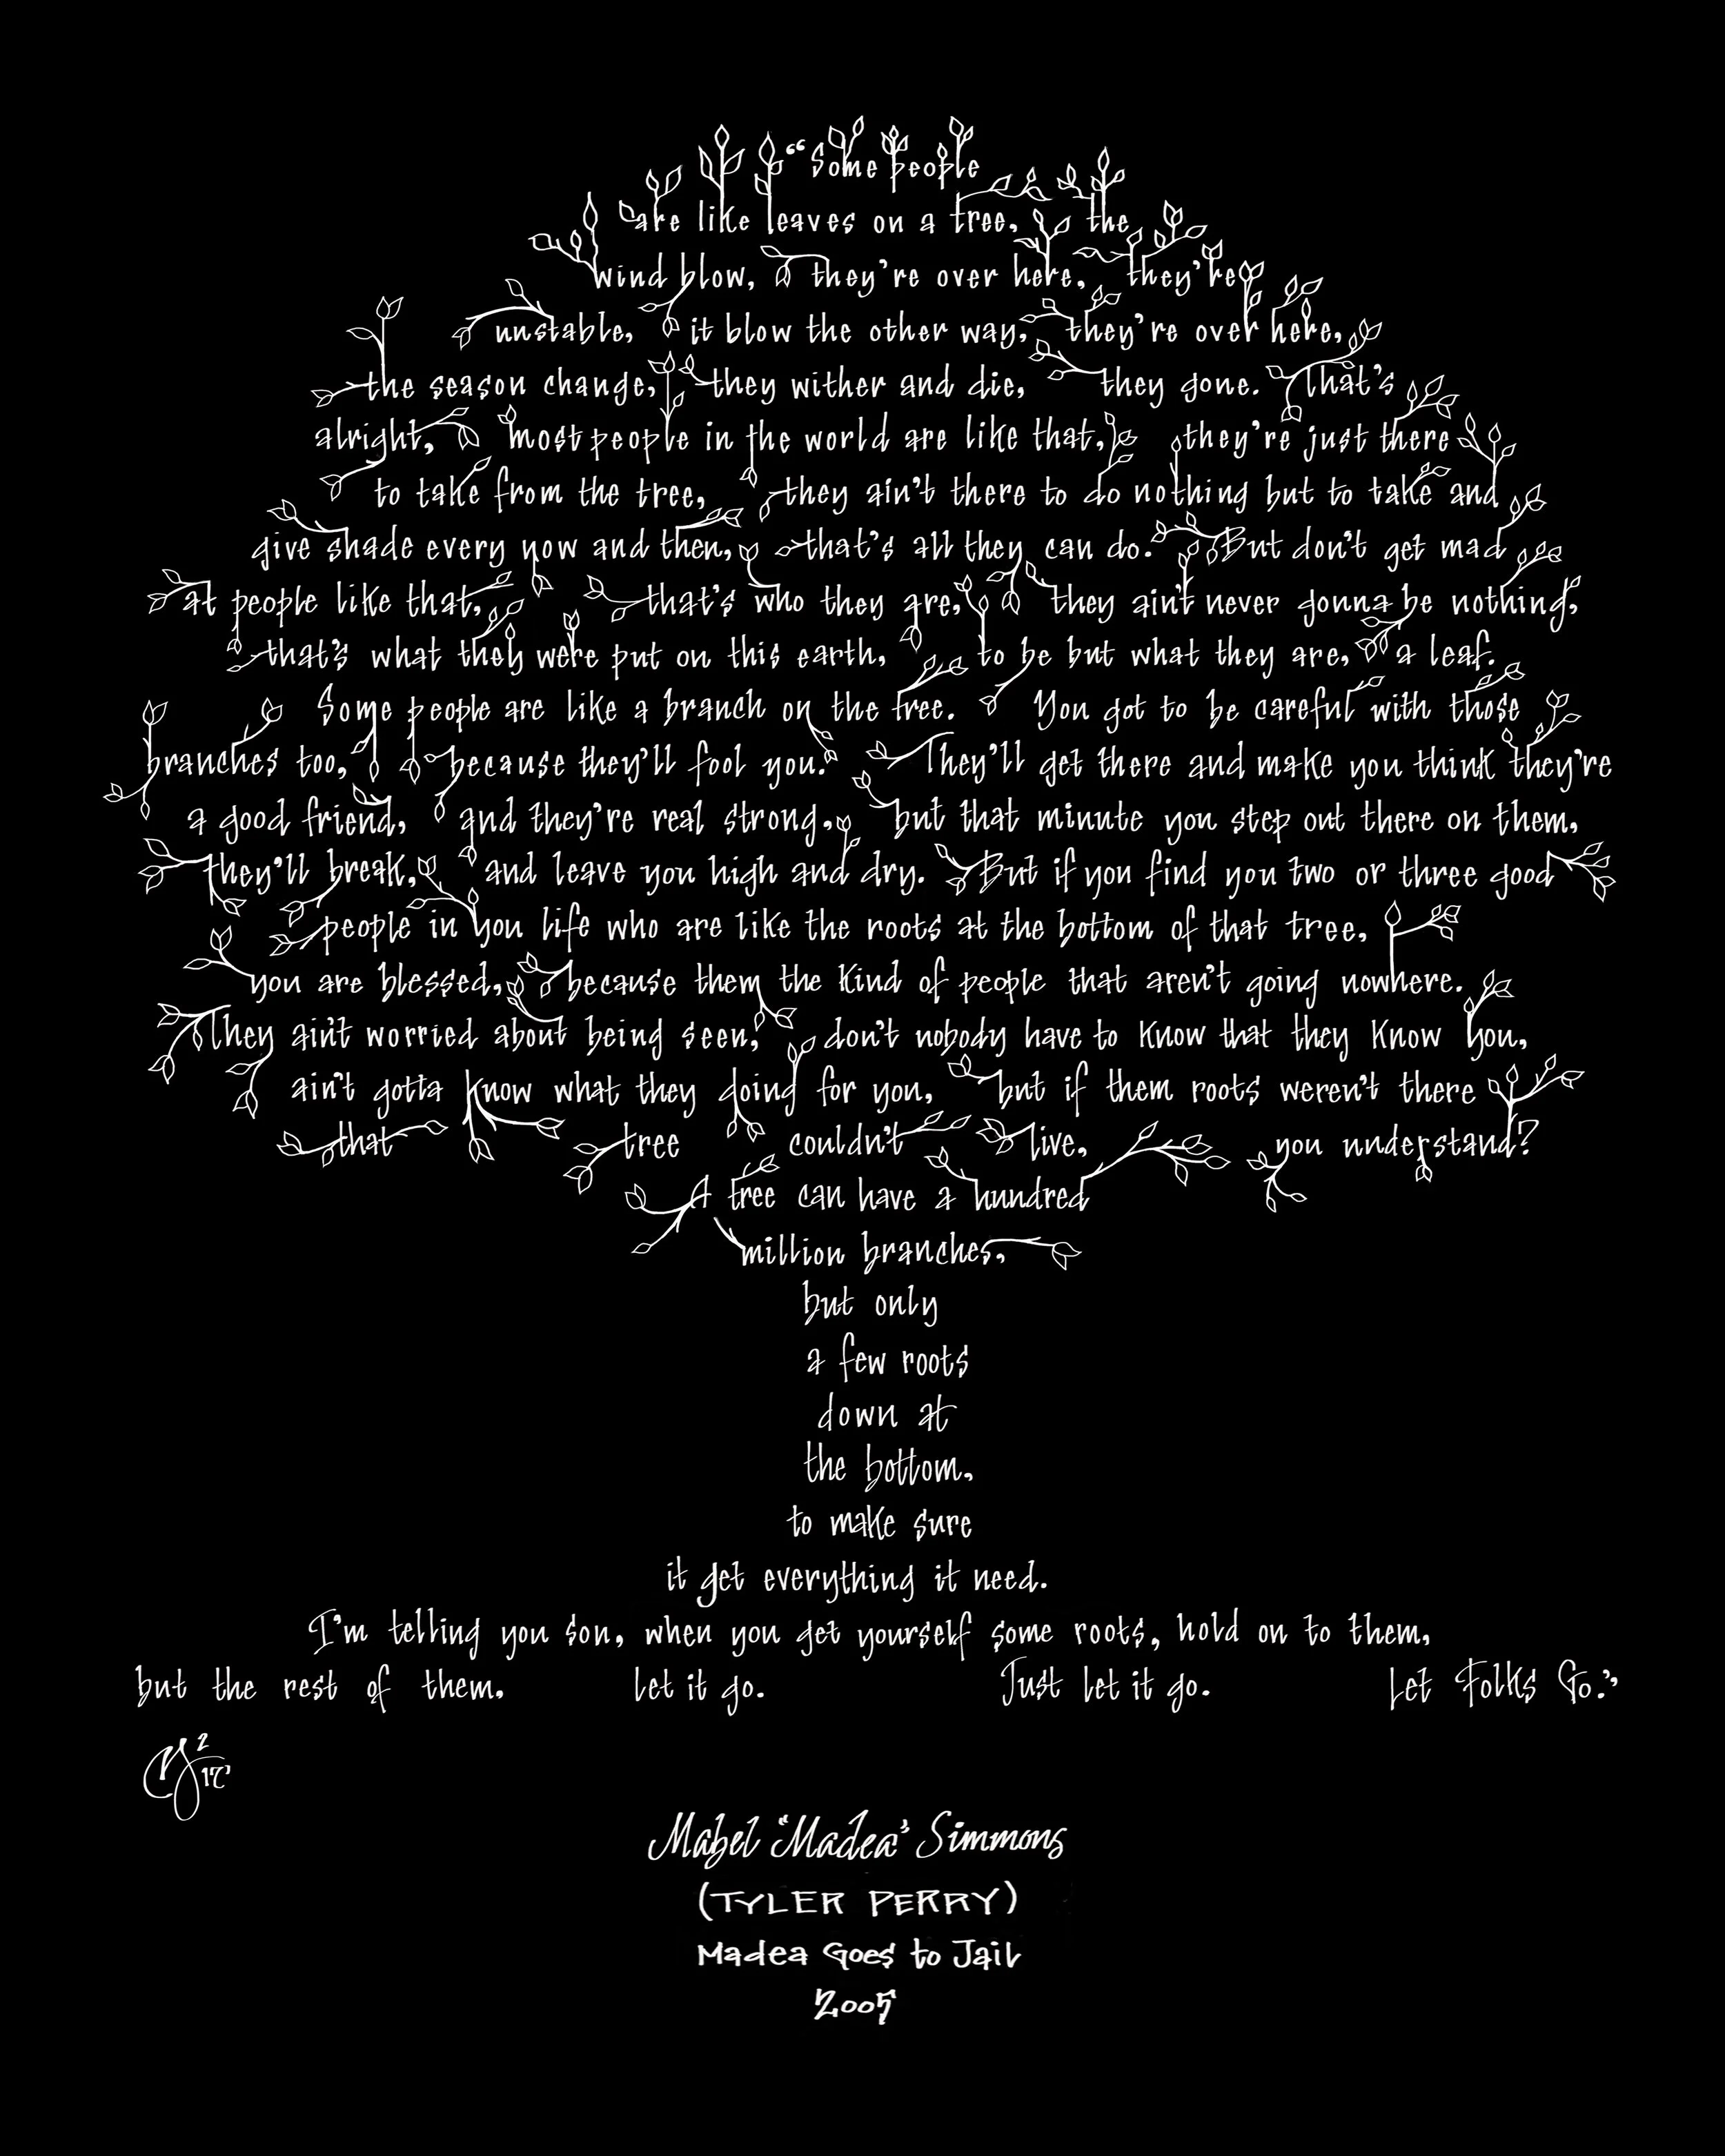 “Some people
are like leaves on a tree, the
wind blow, they're over here, they're
unstable, it blow the other way, they're over here,
the season change, they wither and die, they gone. That's
alright, most people in the world are like that, they're just there
to take from the tree, they ain't there to do nothing but to take and
give shade every now and then, that's all they can do. But don't get mad
at people like that, that's who they are, they ain't never gonna be nothing,
that's what they were put on this earth, to be but what they are, a leaf.
Some people are like a branch on the tree. You got to be careful with those
branches too, because they'll fool you. They'll get there and make you think they're
a good friend, and they're real strong, but that minute you step out there on them,
they'll break, and leave you high and dry. But if you find you two or three good
people in you life who are like the roots at the bottom of that tree,
you are blessed, because them the kind of people that aren't going nowhere.
They ain't worried about being seen, don't nobody have to know that they know you,
ain't gotta know what they doing for you, but if them roots weren't there
that tree couldn't live, you understand?
A tree can have a hundred
million branches,
but only
a few roots
down at
the bottom,
to make sure
it get everything it need.
I'm telling you son, when you get yourself some roots, hold on to them,
but the rest of them, let it go. Just let it go. Let Folks Go.”
Mabel “Madea” Simmons
(TYLER PERRY)
Madea Goes to Jail
2005